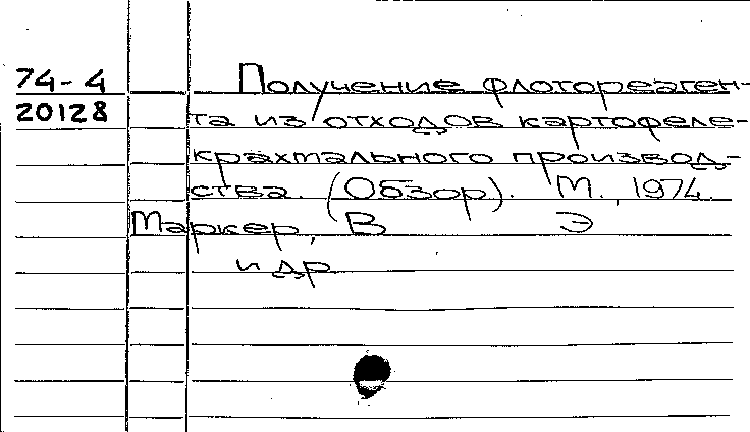 74-4 Получение флотореаген-
20128 та из отходов картофеле-
крахмального производ-
ства. (Обзор). М., 1974.
Маркер, В Э
и др